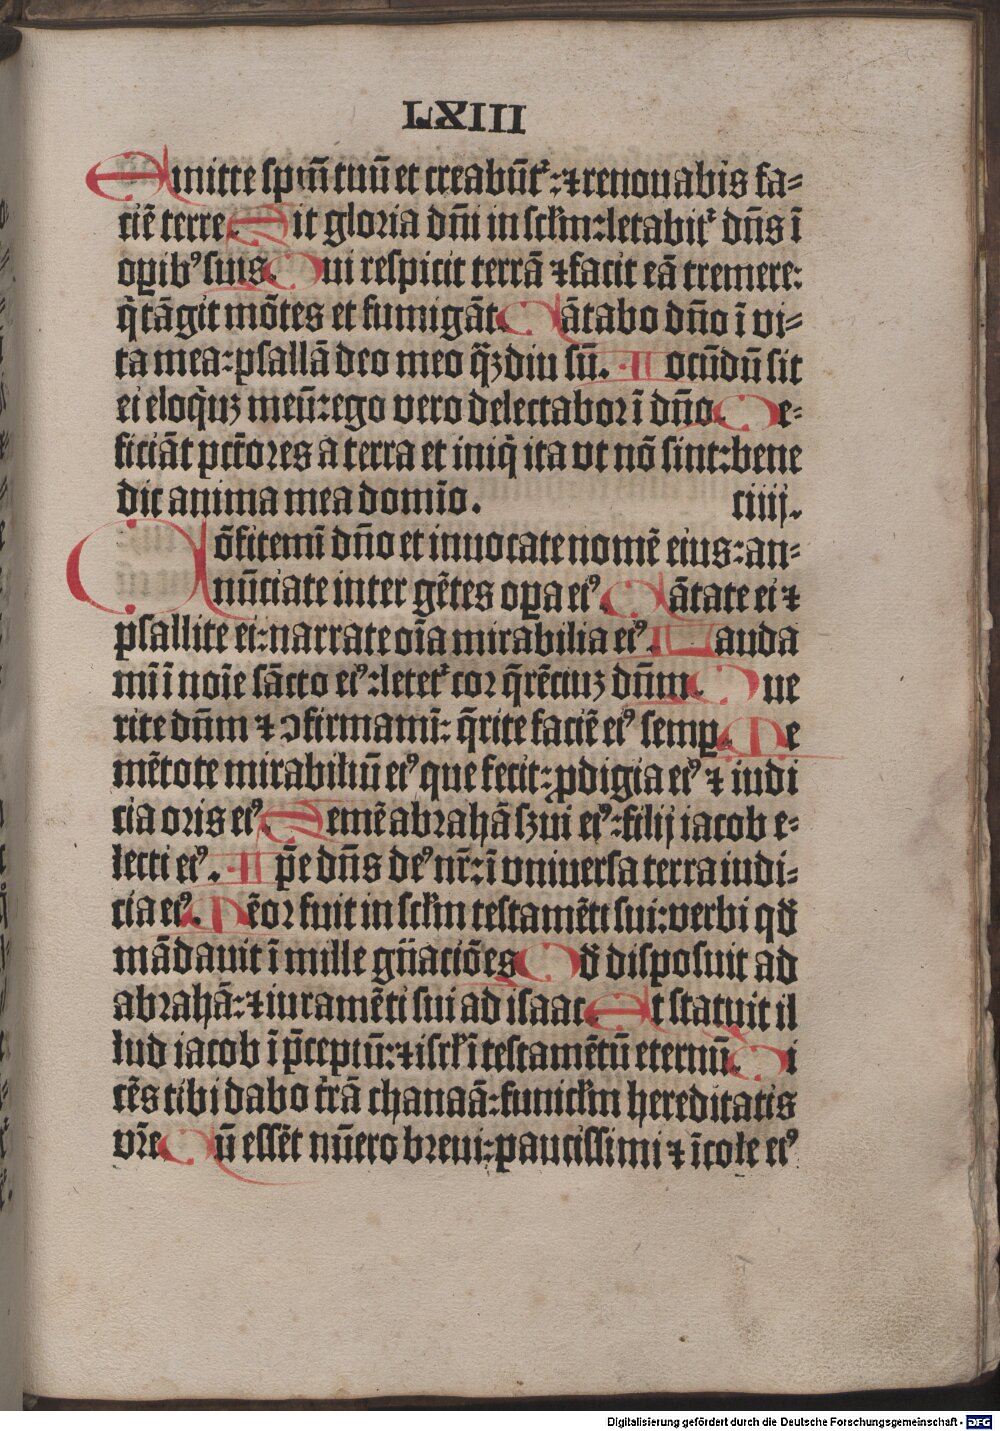 LXIII
Emitte spm̄ tuū et creabūt᷑: ⁊ renouabis fa⸗
ciē terre. Sit gloria dn̄i in sclm̄: letabit᷑ dn̄s ī
oꝑibꝰ suis. Qui respicit terrā ⁊ facit eā tremere:
q̄ tāgit mōtes et fumigāt. Cātabo dn̄o ī vi⸗
ta mea: psallā deo meo q̄ꝫdiu sū. Iocūdū sit
ei eloq̄uꝫ meū: ego vero delectabor ī dn̄o. De⸗
ficiāt pctōres a terra et iniq̄ ita vt nō sint: bene
dic anima mea domīo. ciiij.
Cōfitemī dn̄o et inuocate nomē eius: an⸗
nūciate inter gētes oꝑa eiꝰ. Cātate ei ⁊
psallite ei: narrate oīa mirabilia eiꝰ. Lauda
mī ī noīe sācto eiꝰ: letet᷑ cor q̄rēciuꝫ dn̄m. Que
rite dn̄m ⁊ ꝯfirmamī: q̄rite faciē eiꝰ semꝑ. Me
mētote mirabiliū eiꝰ que fecit: ꝓdigia eiꝰ ⁊ iudi
cia oris eiꝰ. Semē abrahā ẜui eiꝰ: filij iacob e⸗
lecti eiꝰ. Ip̄e dn̄s deꝰ nr̄: ī vniuersa terra iudi⸗
cia eiꝰ. Mēor fuit in sclm̄ testamēti sui: verbi qd̄
mādauit ī mille gn̄aciōes. Qd̄ disposuit ad
abrahā: ⁊ iuramēti sui ad isaac. Et statuit il
lud iacob ī p̄ceptū: ⁊ isrl̄ ī testamētū eternū. Di
cēs tibi dabo tr̄ā chanaā: funiclm̄ hereditatis
vr̄e. Cū essēt nūero breui: paucissimi ⁊ īcole eiꝰ
Digitalisierung gefördert durch die Deutsche Forschungsgemeinschaft - DFG